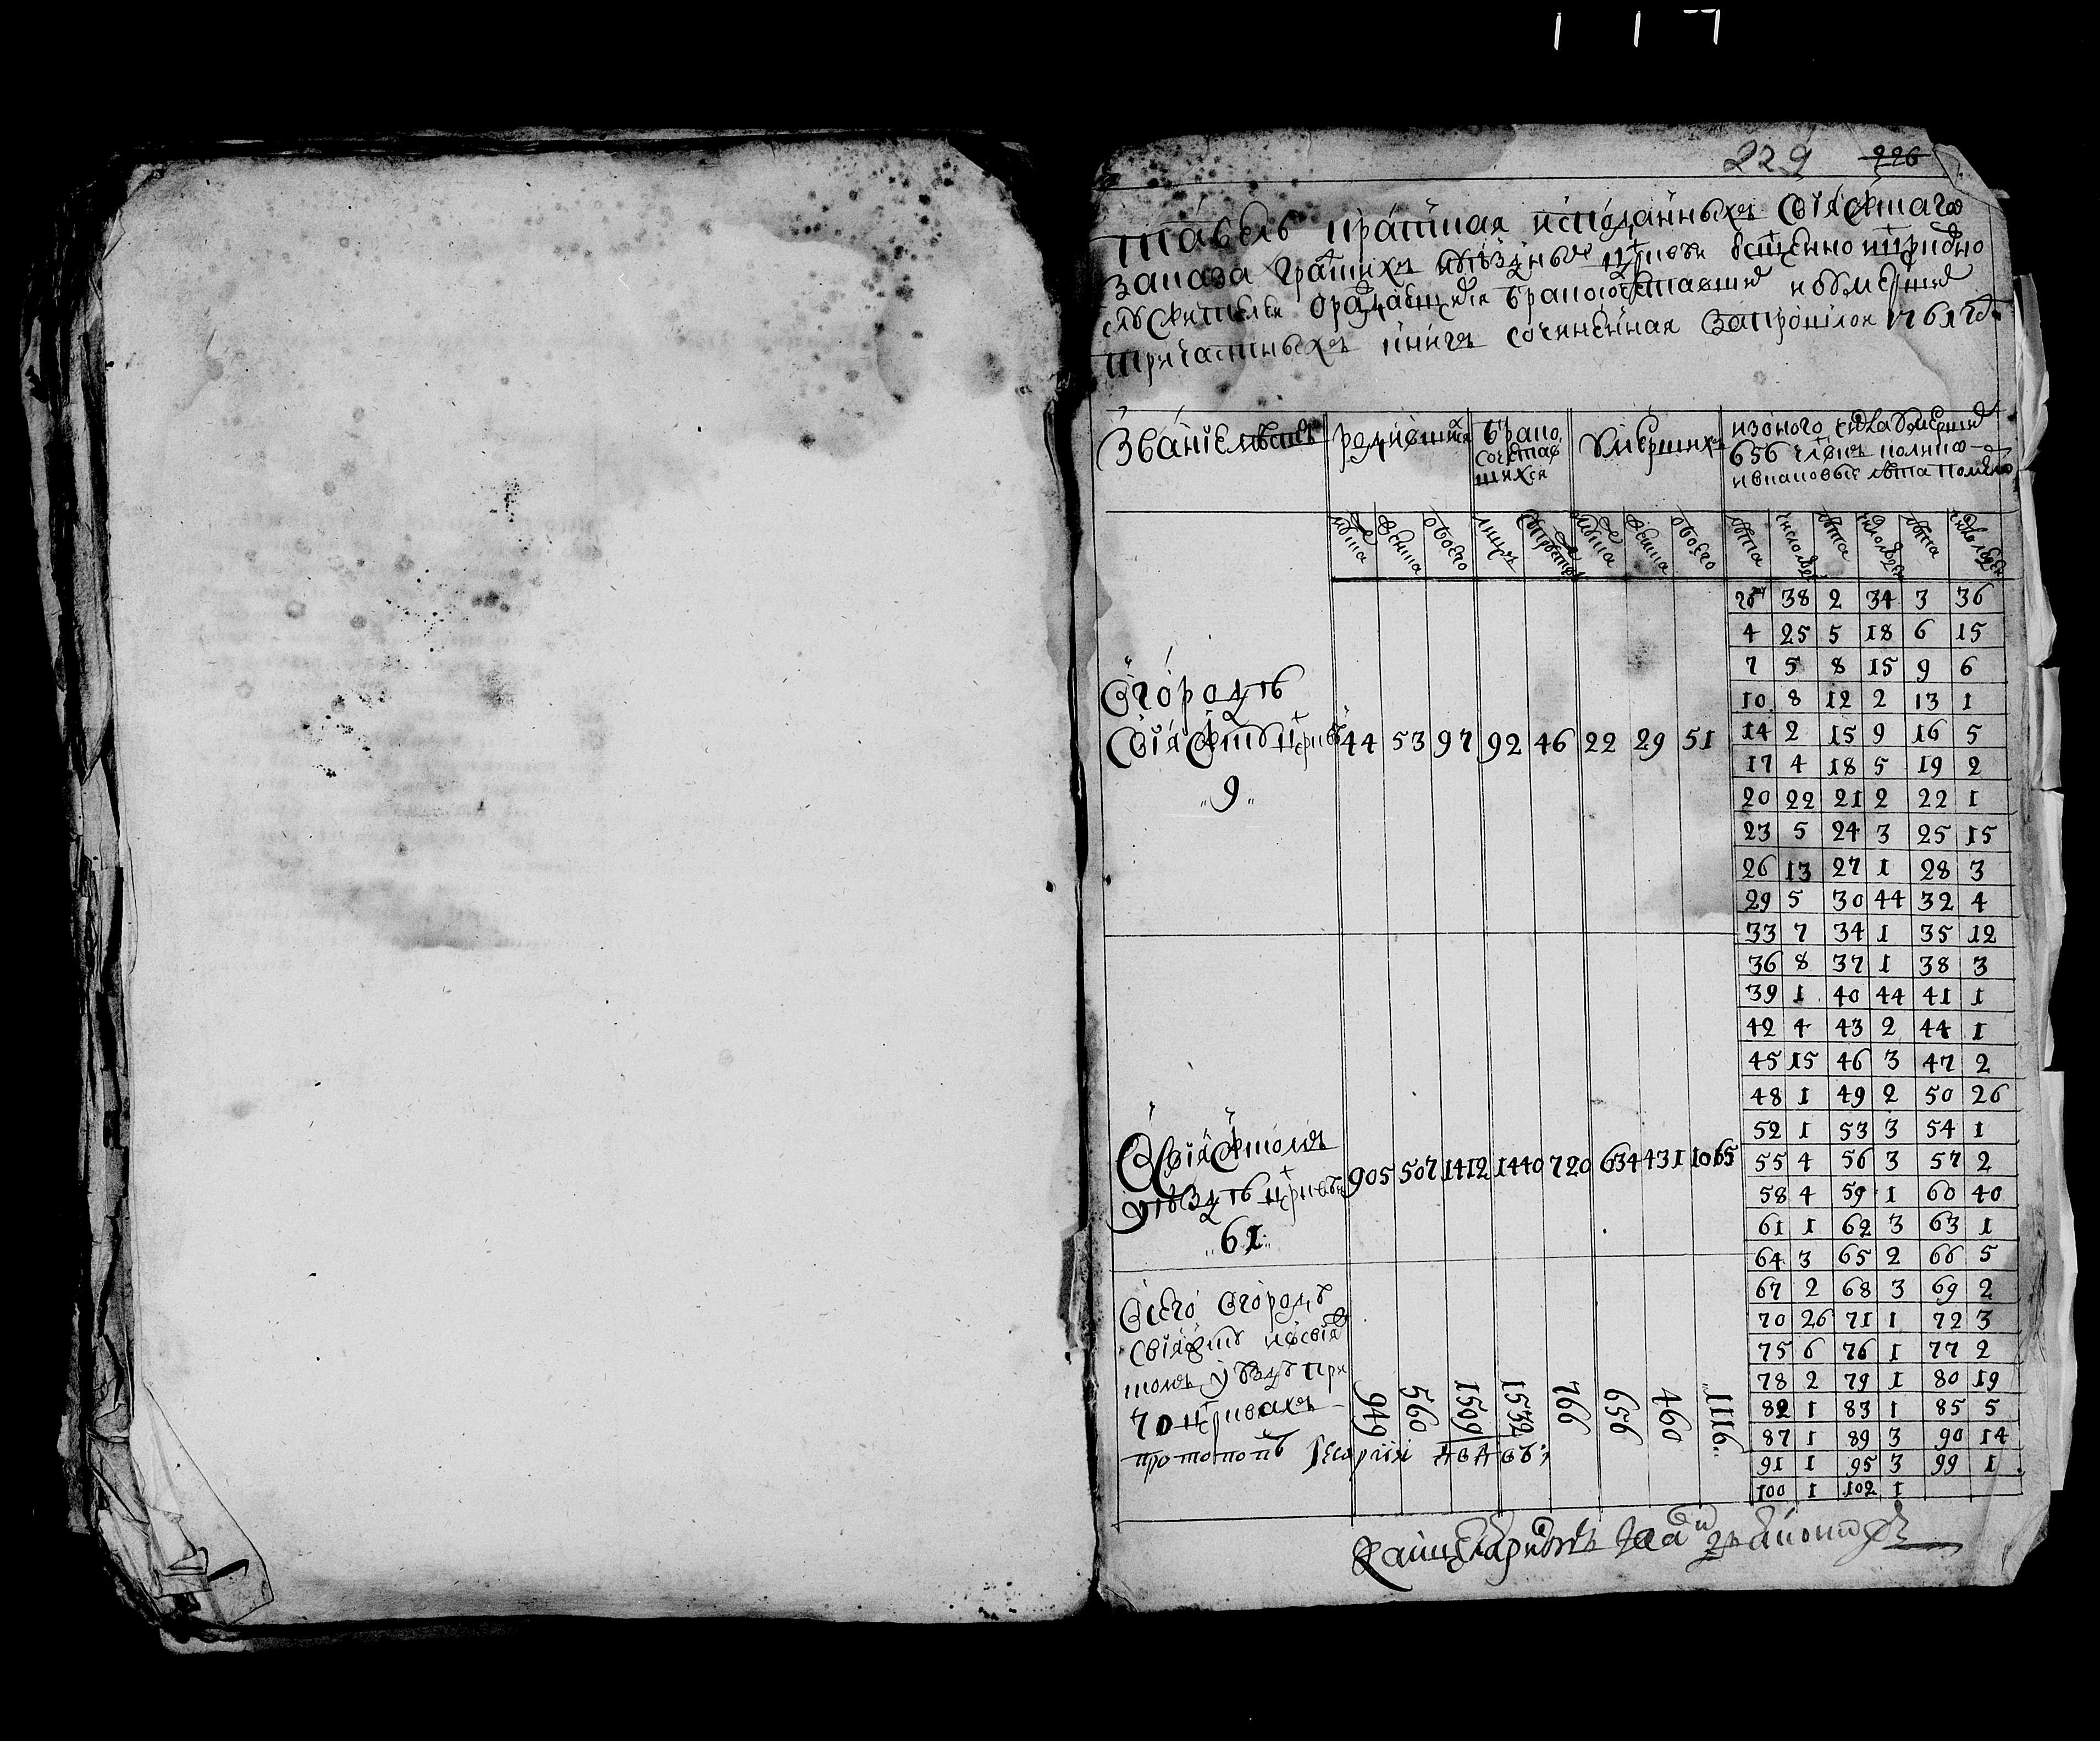 229 226
табель краткая исподанныхъ Свіяжскаго
заказа градцкихъ иуѣздныхъ церквей священно ицерковно
служителеи орождающихся бракосочетавшихся иобумерших
тричастныхъ книгъ сочиненная Запрошлои 1761 год
Званіе мѣстъ родившихся Брако сочетав шихся Умершихъ
изоного числа умерших
656 человѣкъ
лѣта число людей лѣта число людей лѣта число людей
20 38 2 34 3 36
4 25 5 18 6 15
7 5 8 15 9 6
10 8 12 2 13 1
14 2 15 9 16 5
17 4 18 5 19 2
20 22 21 2 22 1
23 5 24 3 25 15
26 13 27 1 28 3
29 5 30 44 32 4
33 7 34 1 35 12
36 8 37 1 38 3
39 1 40 44 41 1
42 4 43 2 44 1
45 15 46 3 47 2
48 1 49 2 50 26
52 1 53 3 54 1
55 4 56 3 57 2
58 4 59 1 60 40
61 1 62 3 63 1
64 3 65 2 66 5
67 2 68 3 69 2
70 26 71 1 72 3
75 6 76 1 77 2
78 2 79 1 80 19
82 1 83 1 85 5
87 1 89 3 90 14
91 1 95 3 99 1
100 1 102 1
Вгородѣ
Свіяжску церквей 44 53 97 92 46 22 29 51
9
Всвіяжскомъ
уѣздѣ церквей 905 507 1412 1440 720 634 431 1065
61
Всего Вгороду
Свіяжску ивсвіяж
скомъ уѣзду при
70 церквахъ 949 560 1509 1532 766 656 460 1116
протопопъ Георгіи
Канцеляристъ